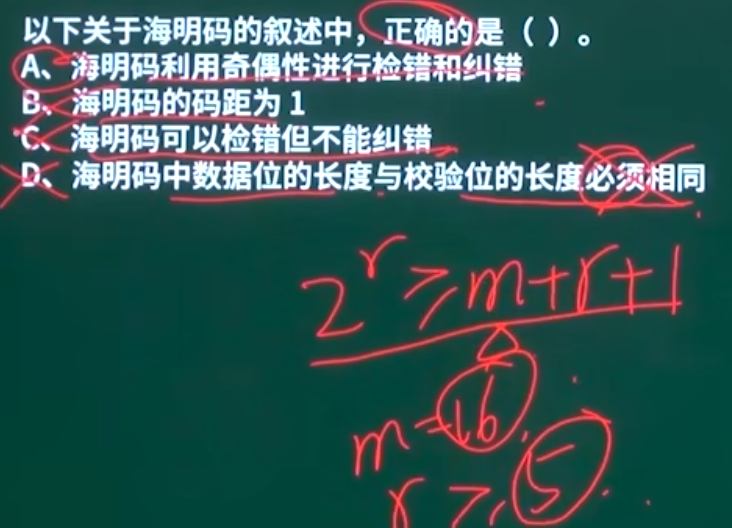 以下关于海明码的叙述中，正确的是（ ）。
A、海明码利用奇偶性进行检错和纠错
B、海明码的码距为 1
C、海明码可以检错但不能纠错
D、海明码中数据位的长度与校验位的长度必须相同
2^r ≥ m+r+1
m=16,
r ≥ 5